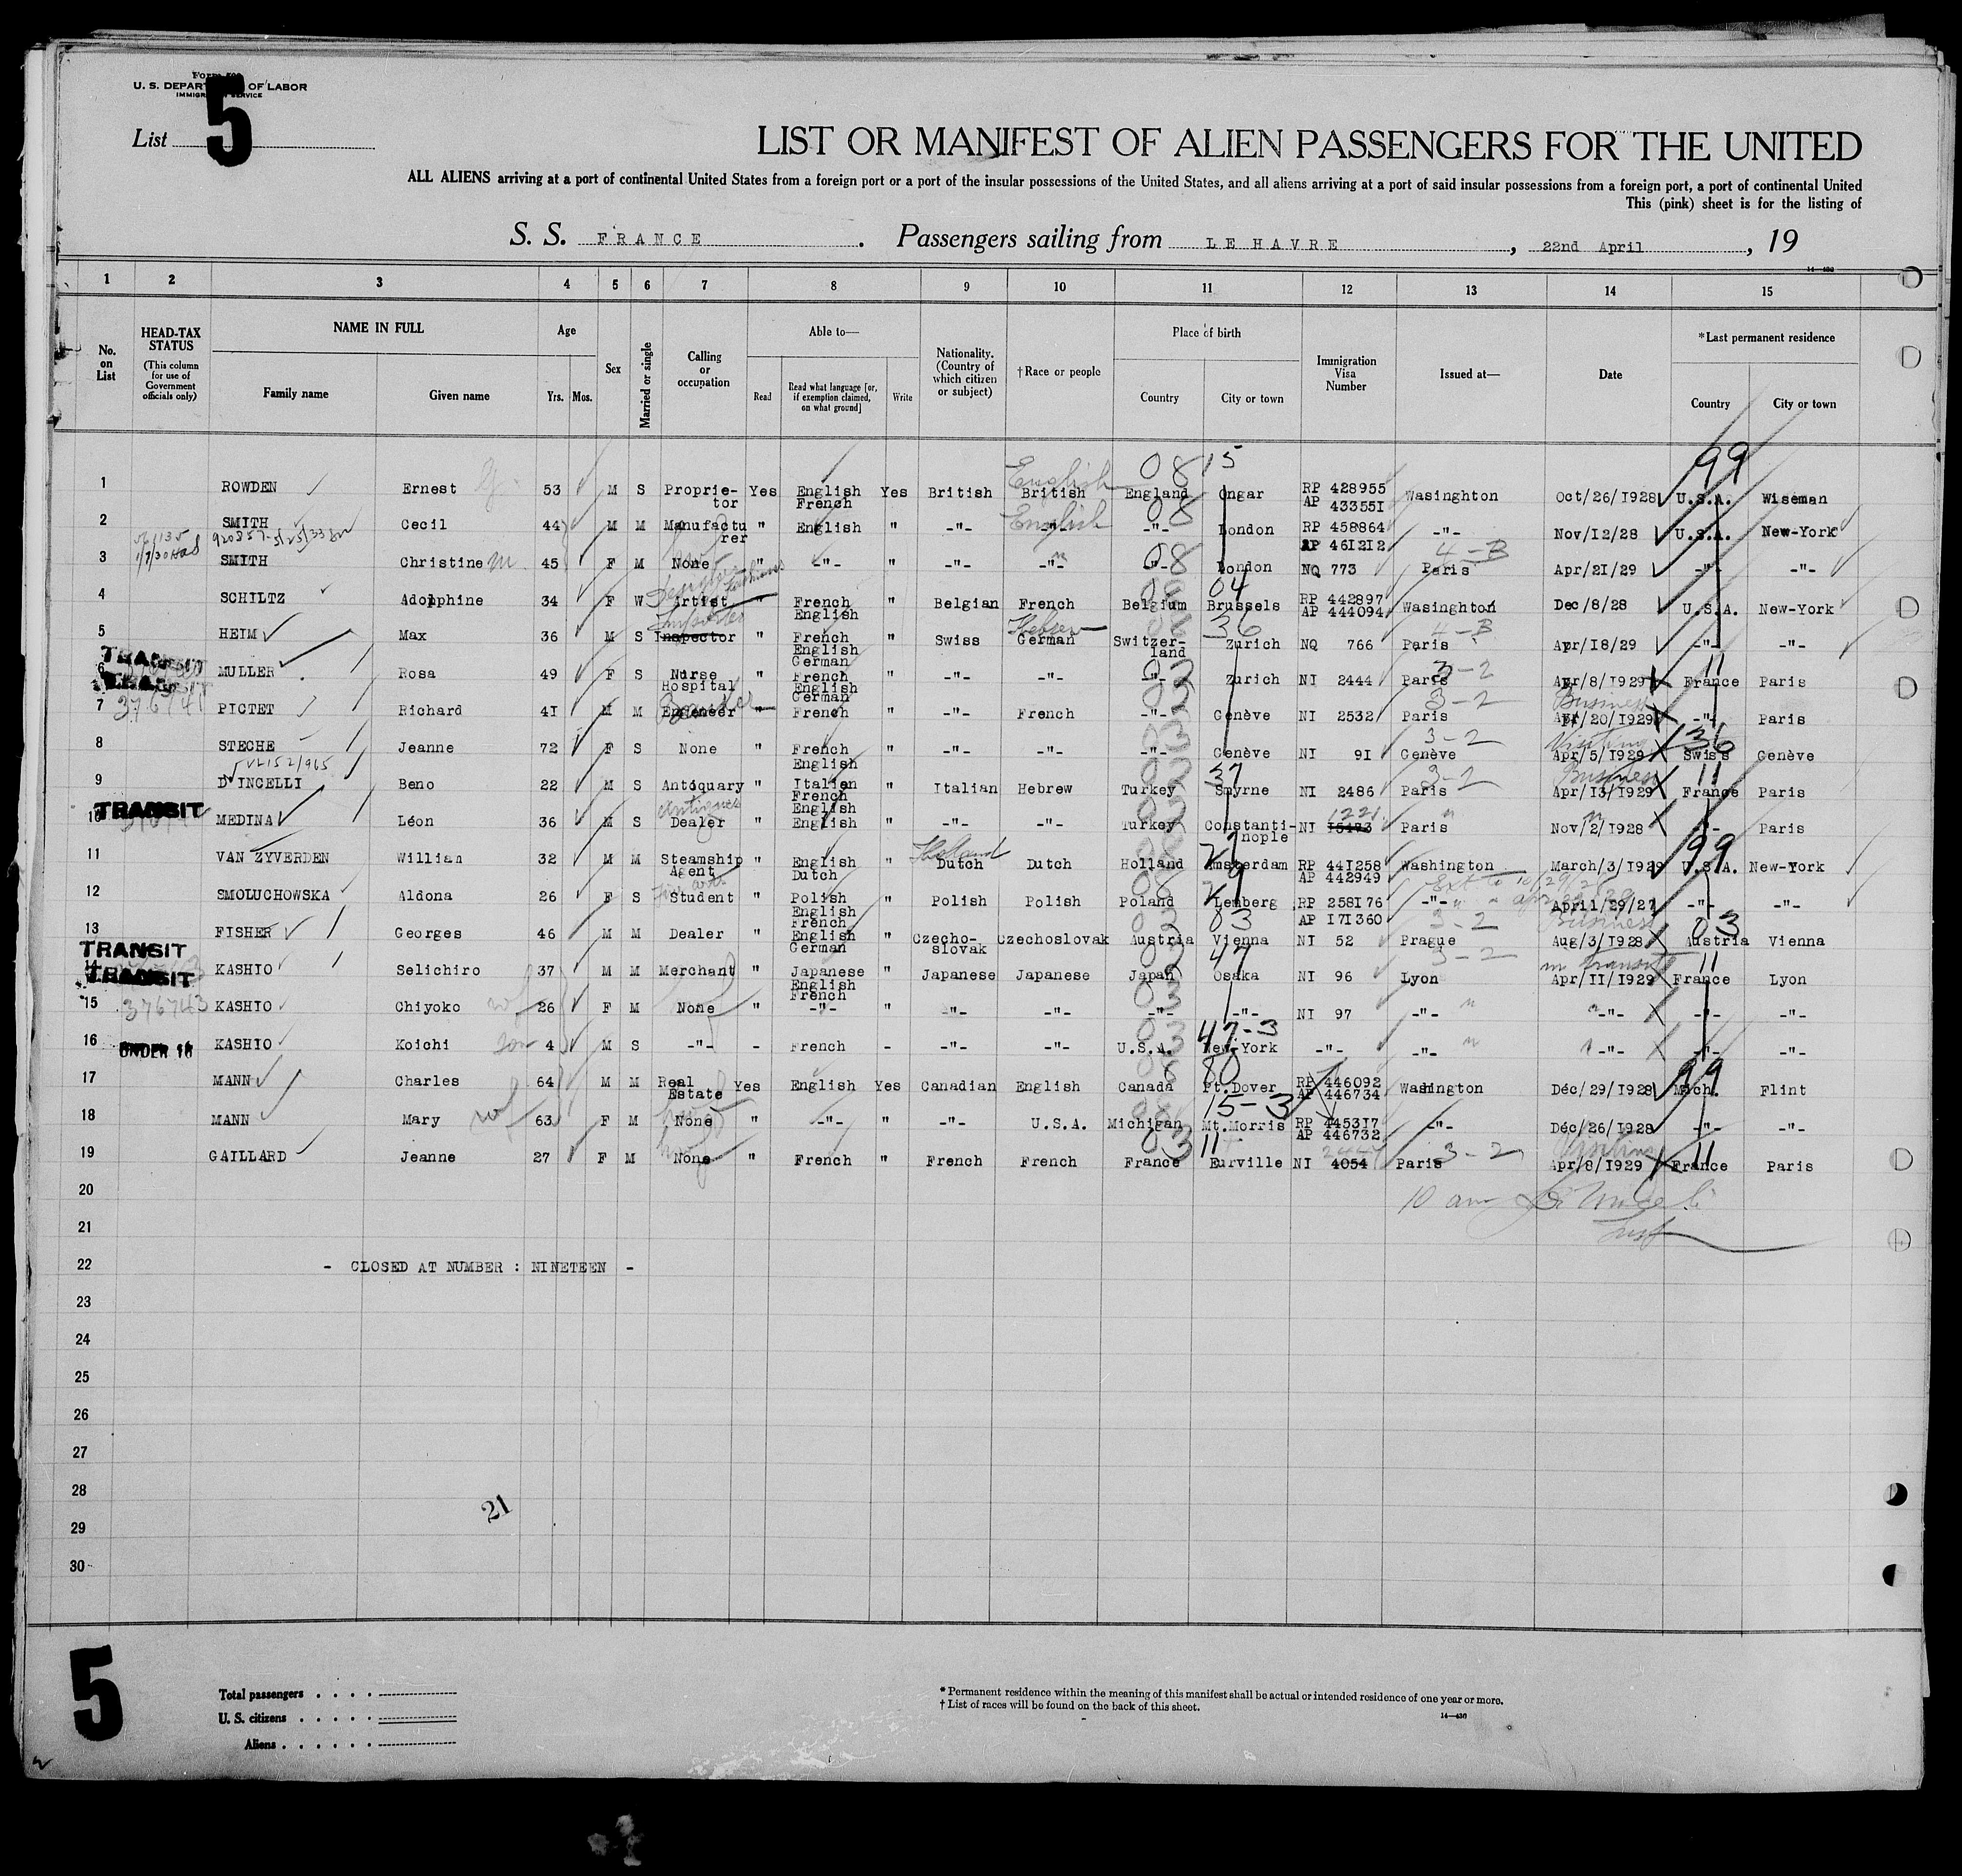 U. S. DEPAR OF LABOR
List 5
LIST OR MANIFEST OF ALIEN PASSENGERS FOR THE UNITED
ALL ALIENS arriving at a port of continental United States from a foreign port or a port of the insular possessions of the United States, and all aliens arriving at a port of said insular possessions from a foreign port, a port of continental United
This (pink) sheet is for the listing of
S. S. FRANCE . Passengers sailing from LE HAVRE , 22nd April , 19
14—430
1 2 3 4 5 6 7 8 9 10 11 12 13 14 15
No. on List
HEAD-TAX STATUS (This column for use of Government officials only)
NAME IN FULL Family name Given name
Age Yrs. Mos.
Sex
Married or single
Calling or occupation
Able to— Read Read what language [or, if exemption claimed, on what ground] Write
Nationality. (Country of which citizen or subject)
†Race or people
Place of birth Country City or town
Immigration Visa Number
Issued at—
Date
*Last permanent residence Country City or town
08 15 99
1 ROWDEN Ernest 53 M S Proprietor Yes English French Yes British English British England Ongar RP 428955 AP 433551 Wasinghton Oct/26/1928 U.S.A. Wiseman
2 SMITH Cecil 44 M M Manufacturer " English " -"- English -"- 08 -"- London RP 458864 AP 461212 -"- Nov/12/28 U.S.A. New-York
3 SMITH Christine 45 F M None " -"- " -"- -"- 08 -"- London NQ 773 4-B Paris Apr/21/29 -"- -"-
4 SCHILTZ Adolphine 34 F W Artist " French English " Belgian French Belgium 04 Brussels RP 442897 AP 444094 Wasinghton Dec/8/28 U.S.A. New-York
5 HEIM Max 36 M S Importer Inspector " French English German " Swiss Hebrew German Switzerland 36 Zurich NQ 766 4-B Paris Apr/18/29 -"- -"-
TRANSIT
6 MULLER Rosa 49 F S Nurse Hospital " French English German " -"- -"- -"- Zurich NI 2444 3-2 Paris Apr/8/1929 11 France Paris
TRANSIT
7 PICTET Richard 41 M M Engeneer " French " -"- French -"- Genève NI 2532 3-2 Paris Business Apr/20/1929 -"- Paris
8 STECHE Jeanne 72 F S None " French English " -"- -"- -"- Genève NI 91 3-2 Genève Visiting Apr/5/1929 36 Swiss Genève
9 D'INCELLI Beno 22 M S Antiquary " Italien French English " Italian Hebrew Turkey 37 Smyrne NI 2486 3-2 Paris Business Apr/13/1929 11 France Paris
TRANSIT
10 MEDINA Léon 36 M S Antiques Dealer " English " -"- -"- Turkey Constantinople NI 1221 15473 Paris Nov/2/1928 -"- Paris
11 VAN ZYVERDEN Willian 32 M M Steamship Agent " English Dutch " Holland Dutch Dutch Holland Amsterdam RP 441258 AP 442949 Washington March/3/1929 99 U.S.A. New-York
12 SMOLUCHOWSKA Aldona 26 F S Student " Polish English French " Polish Polish Poland Lemberg RP 258176 AP 171360 -"- April/29/27 -"- -"-
13 FISHER Georges 46 M M Dealer " English German " Czecho-slovak Czechoslovak Austria 03 Vienna NI 52 3-2 Prague Business Aug/3/1928 03 Austria Vienna
TRANSIT
14 KASHIO Selichiro 37 M M Merchant " Japanese English French " Japanese Japanese Japan 47 Osaka NI 96 3-2 Lyon in transit Apr/11/1929 11 France Lyon
TRANSIT
15 376743 KASHIO Chiyoko 26 F M None " -"- " -"- -"- -"- -"- NI 97 -"- -"- -"- -"-
16 UNDER 16 KASHIO Koichi son 4 M S -"- - French - -"- -"- U.S.A. 47-3 New-York -"- -"- -"- -"- -"-
17 MANN Charles 64 M M Real Estate Yes English Yes Canadian English Canada 80 Pt.Dover RP 446092 AP 446734 Washington Déc/29/1928 99 Mich. Flint
18 MANN Mary wf 63 F M None " -"- " -"- U.S.A. Michigan 15-3 Mt.Morris RP 445317 AP 446732 -"- Déc/26/1928 -"- -"-
19 GAILLARD Jeanne 27 F M None " French " French French 03 France 11 Eurville NI 4054 Paris 3-2 Visiting Apr/8/1929 11 France Paris
20
21
22 - CLOSED AT NUMBER : NINETEEN -
23
24
25
26
27
28
21
29
30
5
Total passengers
U. S. citizens
Aliens
* Permanent residence within the meaning of this manifest shall be actual or intended residence of one year or more.
† List of races will be found on the back of this sheet.
14—430